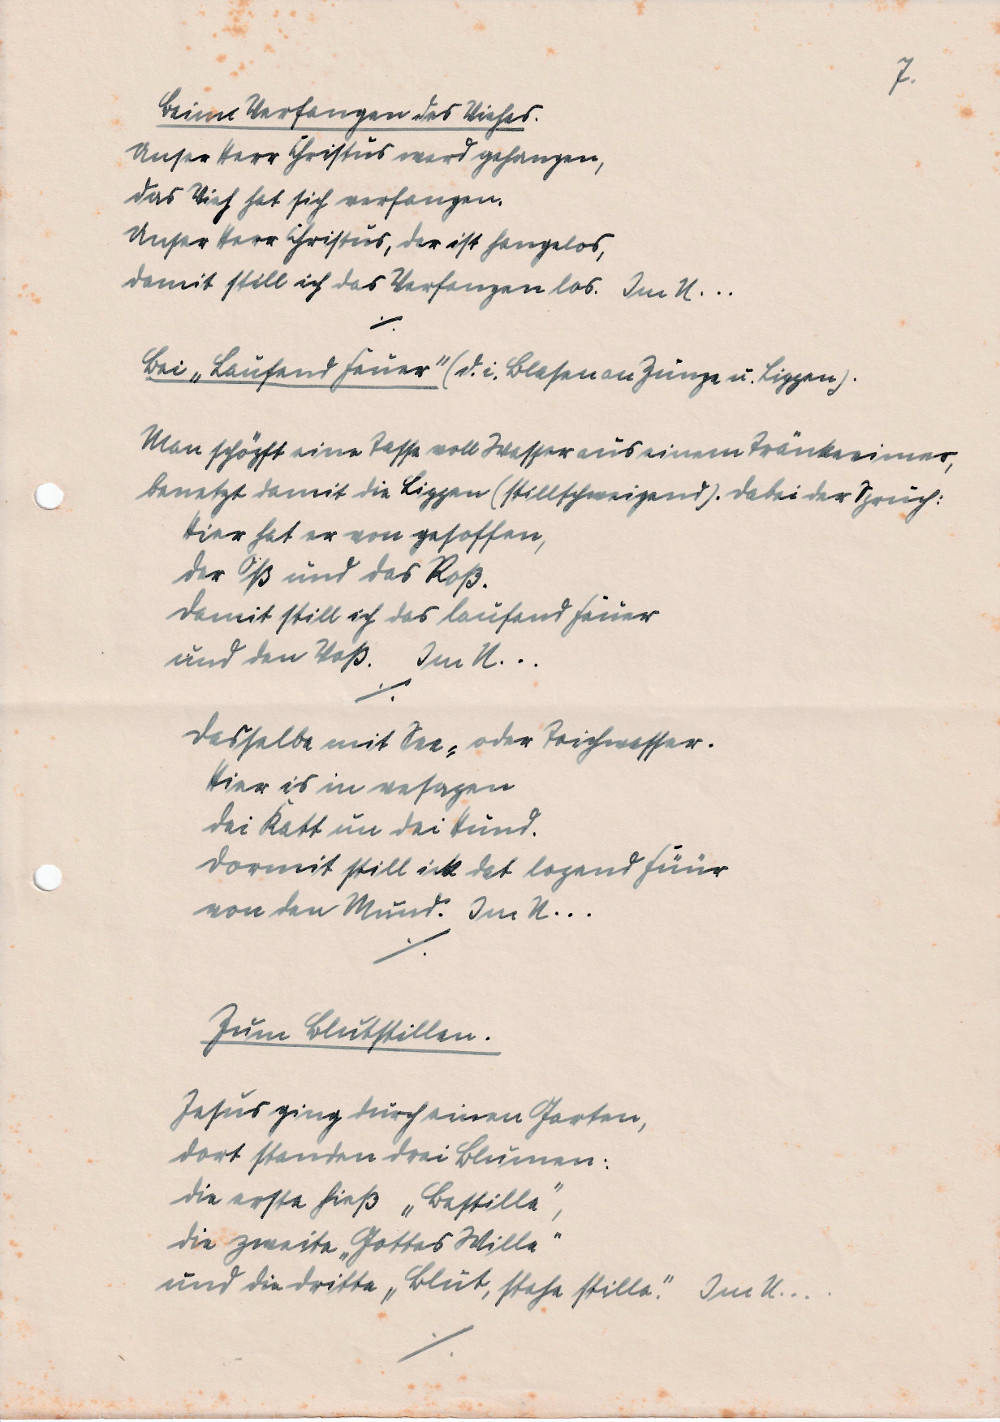 7.
Beim Verfangen des Viehes.
Unser Herr Christus ward gehangen,
das Vieh hat sich verfangen.
Unser Herr Christus, der ist hangelos,
damit still ich das Verfangen los. Im N...
·/.
Bei „Laufend Feuer" (d. i. Blasen an Zunge u. Lippen).
Man schöpft eine Tasse voll Wasser aus einem Tränkeeimer,
benetzt damit die Lippen (stillschweigend). Dabei der Spruch:
Hier hat er von gesoffen,
der Oß und das Roß.
Damit still ich das laufend Feuer
und den Voß. Im N...
·/.
Dasselbe mit See- oder Teichwasser.
Hier is in versapen
dei Katt un dei Hund.
Dormit still ick dat lopend Füür
von den Mund. Im N...
·/.
Zum Blutstillen.
Jesus ging durch einen Garten,
dort standen drei Blumen:
die erste hieß „Bestille",
die zweite „Gottes Wille"
und die dritte „Blut, stehe stille." Im N....
·/.